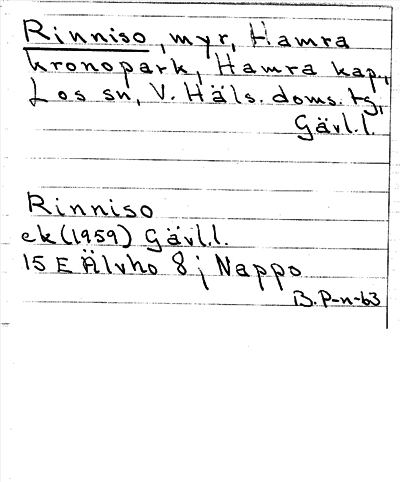 Rinniso, myr, Hamra
kronopark, Hamra kap.,
Los sn, V. Häls. doms. tg,
Gävl.l.
Rinniso
ek (1959) Gävl.l.
15 E Älvho 8 j Nappo
B. P-n-63